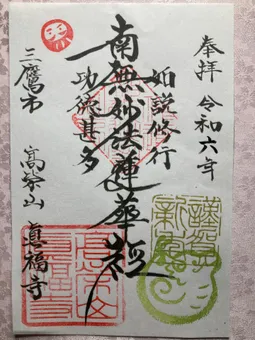 奉拝 令和六年
如説修行
南無妙法蓮華経
功徳甚多
三鷹市 高栄山 真福寺